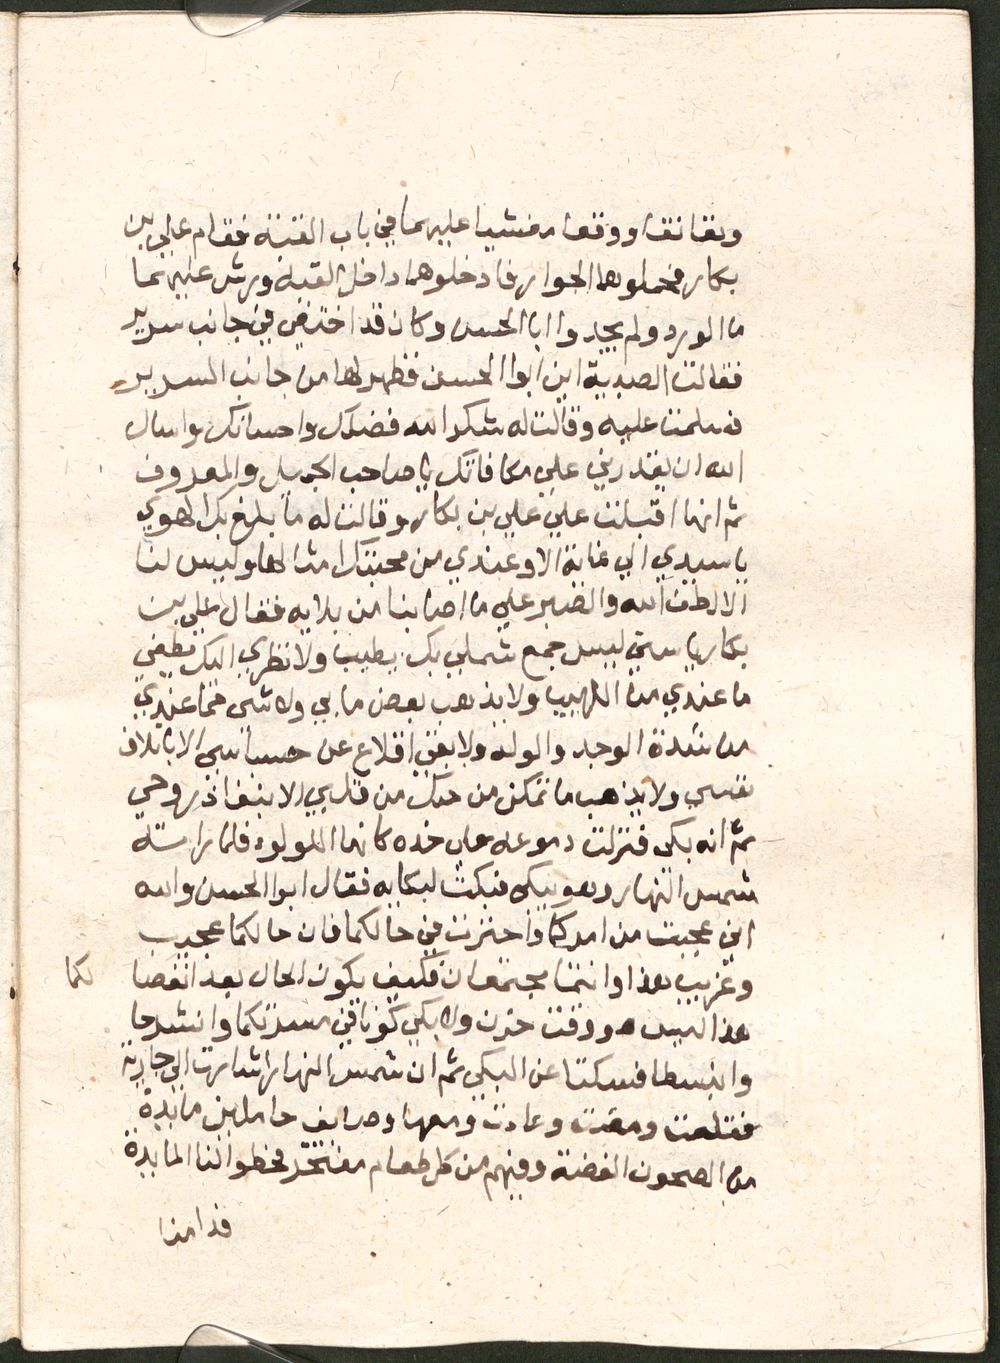 وتعانقا ووقعا مغشيا عليهما في باب القبة فقام علي بن
بكار فحملوهما الجوار فادخلوهما داخل القبة ورش عليهما
ما الورد ولم يجدوا ابا الحسن وكان قد اختفي في جانب سرير
فقالت الصبية اين ابوا الحسن فظهر لها من جانب السرير
فسلمت عليه وقالت له شكر الله فضلك واحسانك واسال
الله ان يقدرني علي مكافاتك يا صاحب الجميل والمعروف
ثم انها اقبلت علي علي بن بكار وقالت له ما بلغ بك الهوي
يا سيدي الي غاية الا وعندي من محبتك امثالها وليس لنا
الا لطف الله والصبر علي ما اصابنا من بلايه فقال علي بن
بكار يا ستي ليس جمع شملي بك يطيب ولا نظري اليك يطفي
ما عندي من اللهيب ولا يذهب بعض ما بي ولا شي مما عندي
من شدة الوجد والوله ولا بقي اقلاع عن حبك الا باتلاف
نفسي ولا يذهب ما تمكن من حبك من قلبي الا بنفاذ روحي
ثم انه بكي فنزلت دموعه علي خده كانها اللولو فلما راته
شمس النهار وهو يبكي فبكت لبكايه فقال ابوا الحسن والله
اني عجبت من امركما واحترت في حالكما فان حالكما عجيب
وغريب هذا وانتما مجتمعان فكيف يكون الحال بعد انفضا
لكما
هذا ليس هو وقت حزن ولا بكي كونا في مسرتكما وانشرحا
وانبسطا فسكتا عن البكي ثم ان شمس النهار اشارت الي جارية
فقامت ومضت وعادت ومعها وصايف حاملين مايدة
من الصحون الفضة وفيهم من كل طعام مفتخر فحطوا لنا المايدة
قدامنا